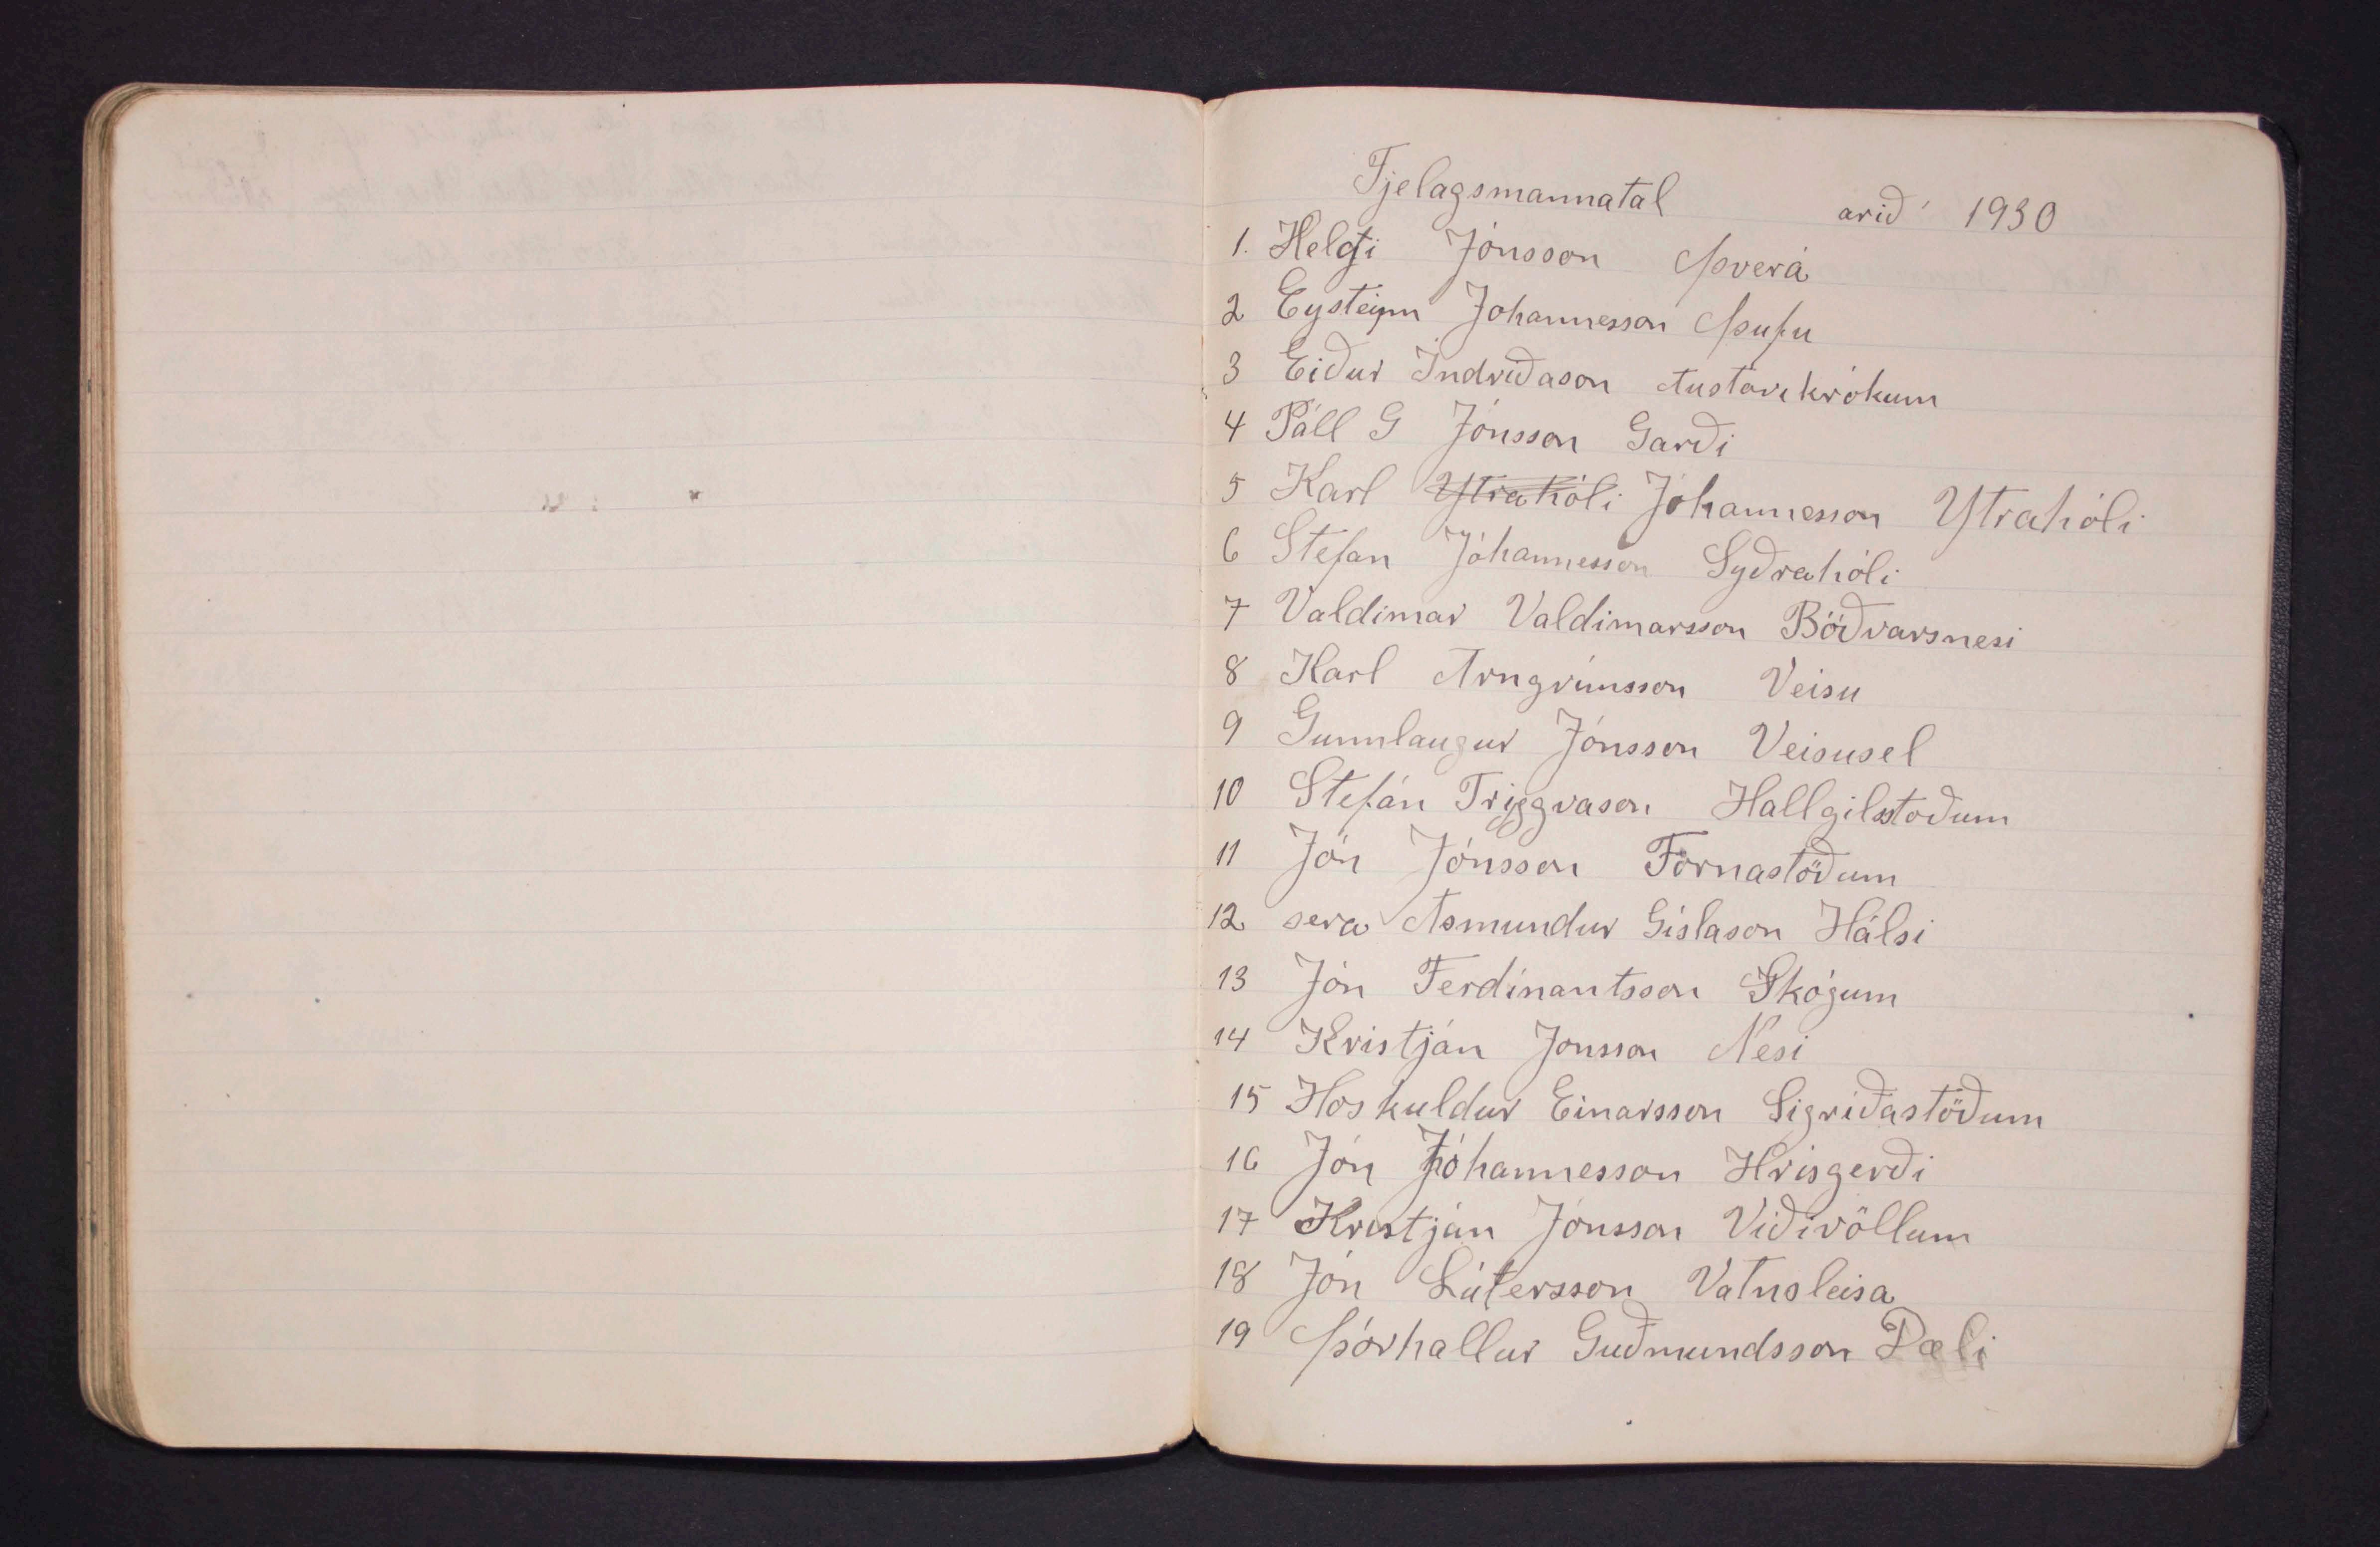 Fjelagsmannatal arið 1930
1. Helgi Jónsson Þverá
2 Eysteinn Johannesson Þufu
3 Eiður Indriðason Austarikrókum
4 Páll G Jónsson Garði
5 Karl Ytrahóli Jóhannesson Ytrahóli
6 Stefan Jóhannesson Syðrahóli
7 Valdimar Valdimarsson Böðvarsnesi
8 Karl Arngrímsson Veisu
9 Gunnlaugur Jónsson Veisusel
10 Stefán Triggvason Hallgilsstoðum
11 Jón Jónsson Fornastöðum
12 sera Asmundur Gíslason Hálsi
13 Jón Ferdínantsson Skógum
14 Kristján Jonsson Nesi
15 Hoskuldur Einarsson Sigríðastöðum
16 Jón Jóhannesson Hrísgerði
17 Kristján Jónsson Viðivöllum
18 Jón Lútersson Vatnsleisa
19 Þórhallur Guðmundsson Dæli